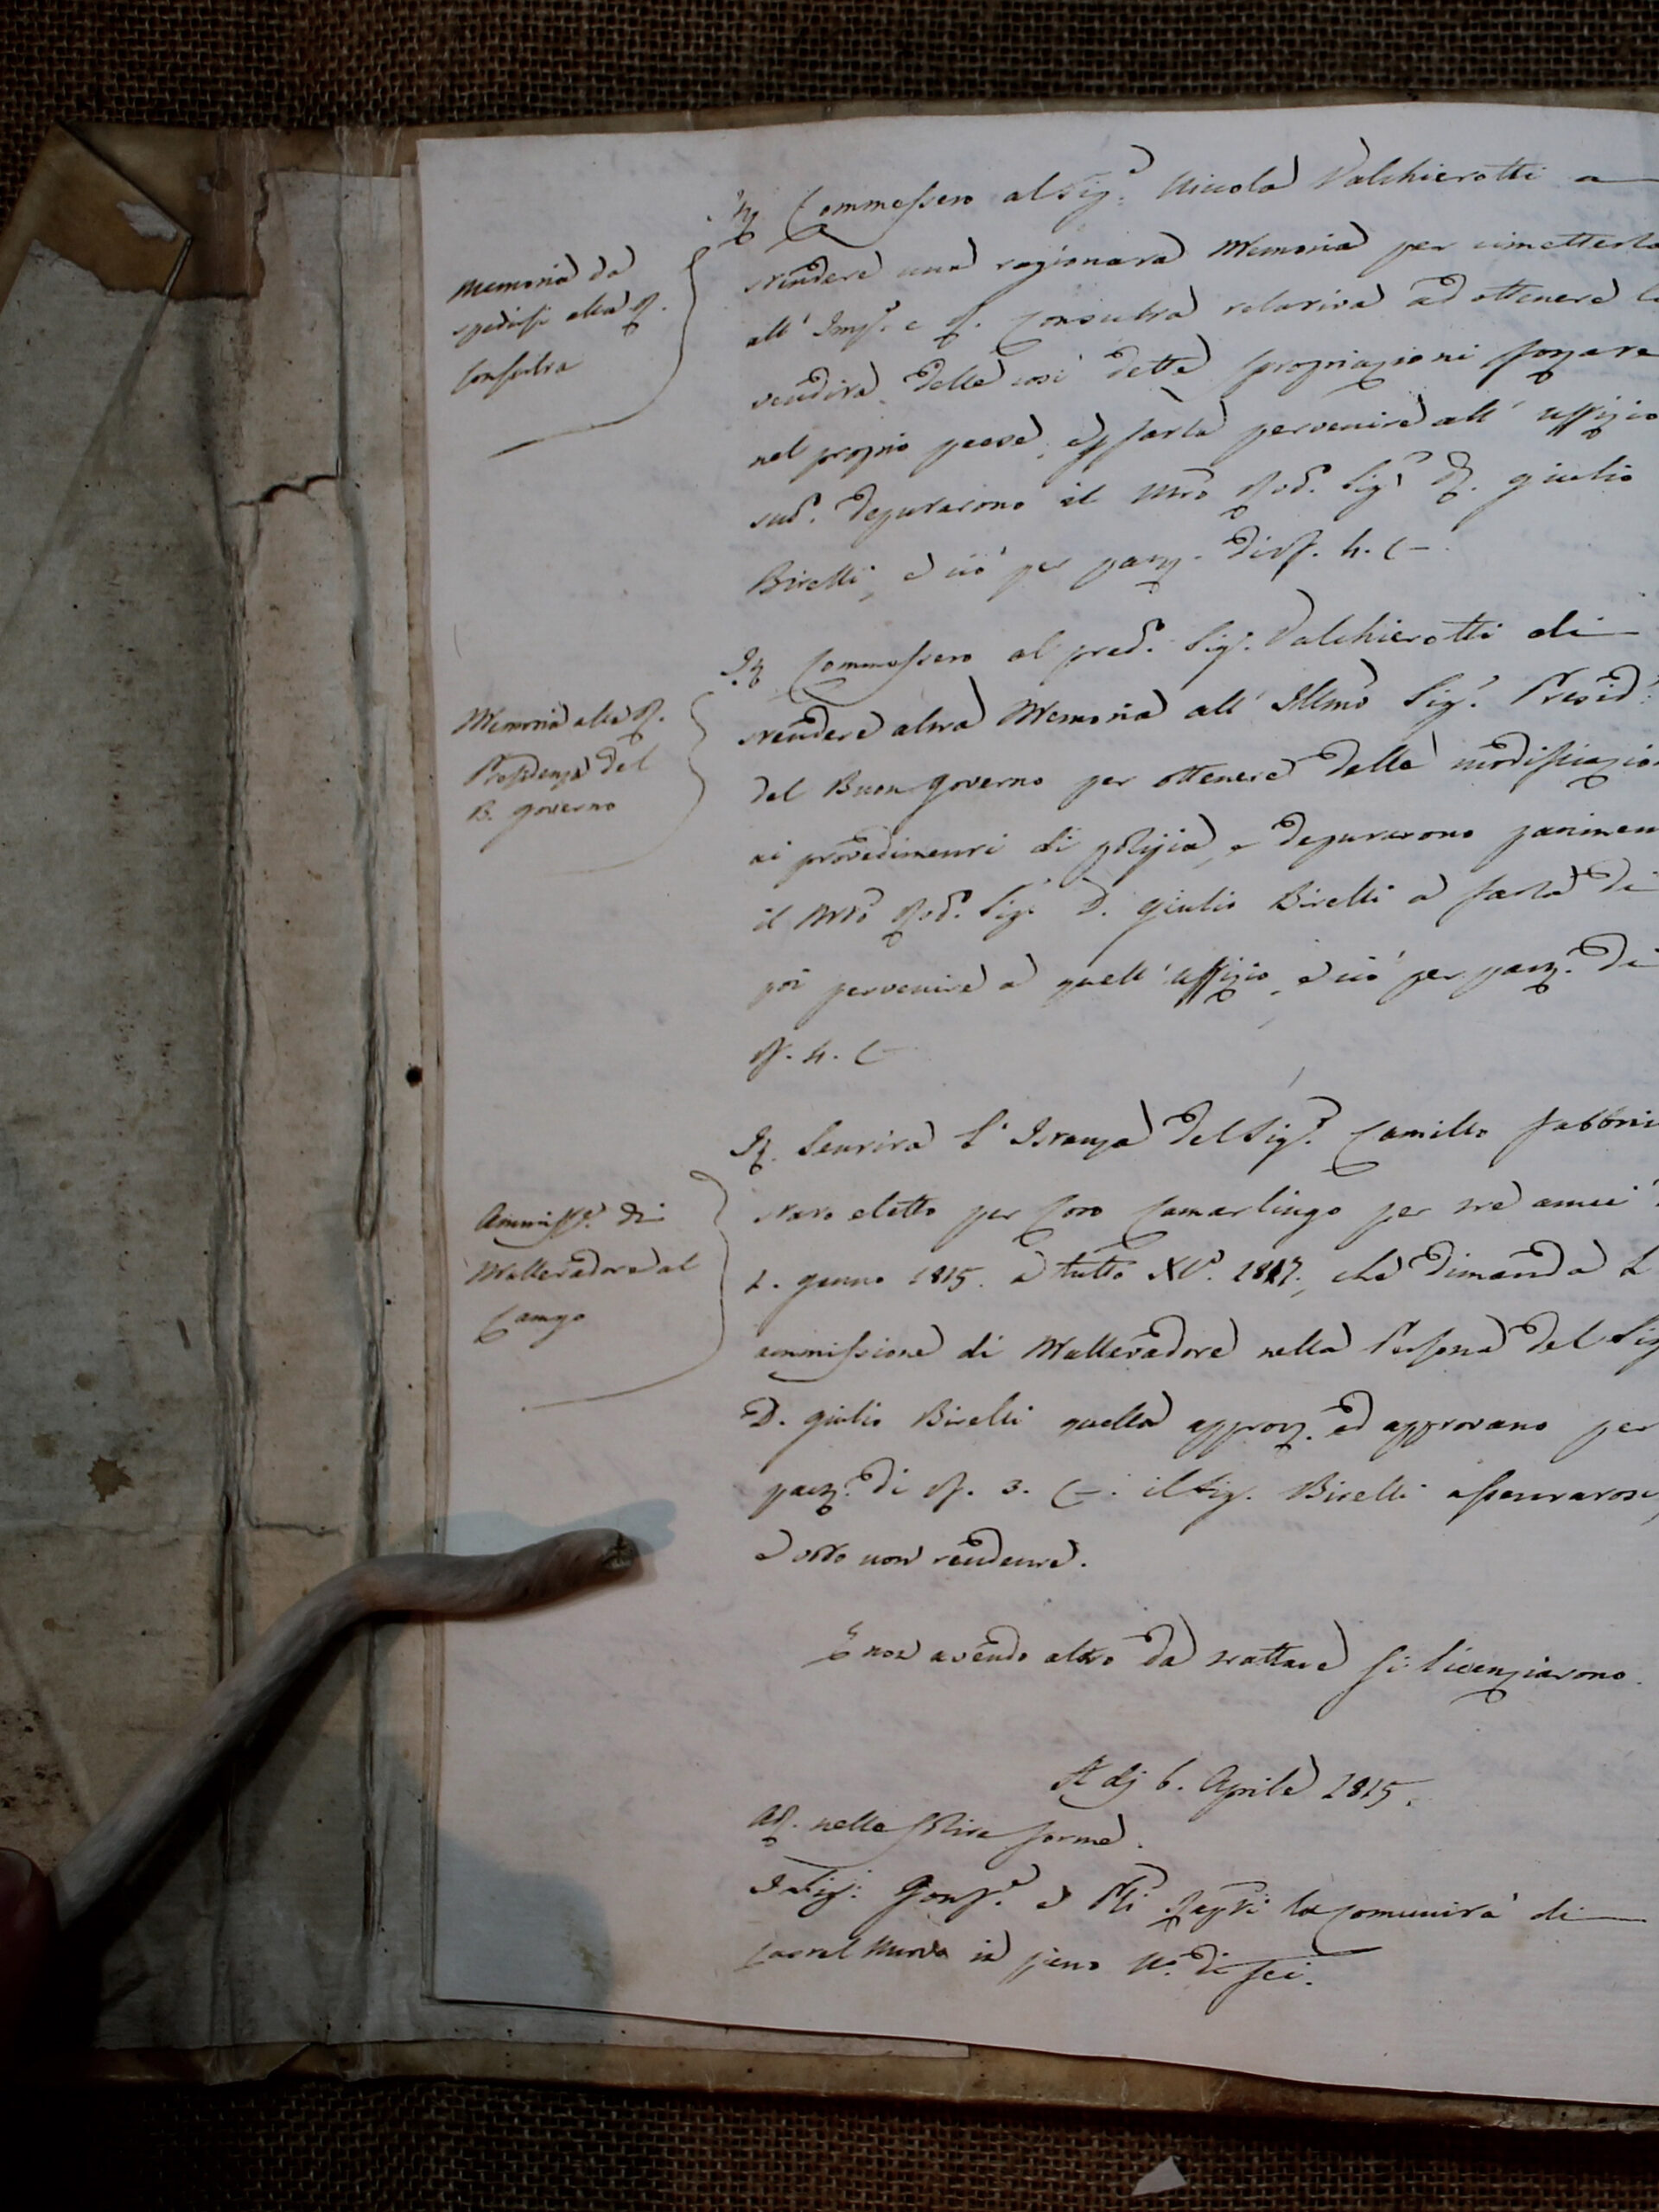 Memoria da
spedirsi alla R.
Consulta
Iq. Commessero al Sig.e Nicola Valchierotti a
stendere una ragionata Memoria per rimetterla
all' Imp. e R. Consulta relativa ad ottenere la
vendita delle così dette spropriazioni forzate
nel proprio paese, e farla pervenire all' Uffizio
sud.o deputarono il Mto Rod. Sig.r D. Giulio
Birelli, e ciò per part. di v. f. 4. C—.
Memoria alla R.
Presidenza del
B. Governo
Iq. Commessero al pred.o Sig.r Valchierotti di
stendere altra Memoria all' Illmo Sig.r Presid.
del Buon Governo per ottenere delle modificazio
ai provedimenti di polizia, e deputarono parimen
il Mto Rod. Sig.r D. Giulio Birelli a farla di
poi pervenire a quell' Uffizio, e ciò per part. di
f. 4. C—
Ammiss.e di
Mallevadore al
Camgo
Iq. Sentita l' Istanza del Sig.e Camillo Fabbrini
stato eletto per loro Camarlingo per tre anni
1. genno 1815. a tutto Xb. 1817., che dimanda l
ammissione di Mallevadore nella Persona del Sig
D. Giulio Birelli quella approv. ed approvano per
part. di f. 3. C—. il Sig. Birelli assentatosi,
e voto non rendente.
E non avendo altro da trattare si licenziarono.
A dj 6. Aprile 1815.
Ad. nelle solite forme.
I Sig.i Gonf.e e Pri Rappti la Comunità di
Castel Nuovo in pieno N.o di sei.